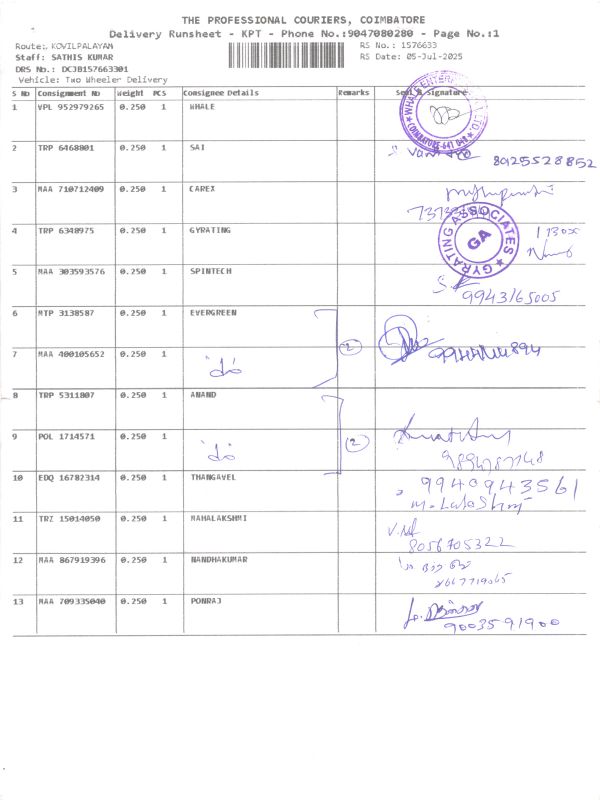 THE PROFESSIONAL COURIERS, COIMBATORE
Delivery Runsheet - KPT - Phone No.:9047080280 - Page No.:1
Route: KOVILPALAYAM
RS No.: 1576633
Staff: SATHIS KUMAR
RS Date: 05-Jul-2025
DRS No.: DCJB157663301
Vehicle: Two Wheeler Delivery
S No Consignment No Weight PCS Consignee Details Remarks Seal & Signature
1 VPL 952979265 0.250 1 WHALE
2 TRP 6468801 0.250 1 SAI
8925528852
3 MAA 710712409 0.250 1 CAREX
4 TRP 6348975 0.250 1 GYRATING
GYRATING ASSOCIATES
GA
1 Box
5 MAA 303593576 0.250 1 SPINTECH
9943165005
6 MTP 3138587 0.250 1 EVERGREEN
2
7 MAA 400105652 0.250 1
"do
8 TRP 5311807 0.250 1 ANAND
9 POL 1714571 0.250 1
"do
2
10 EDQ 16782314 0.250 1 THANGAVEL
9940943561
11 TRZ 15014050 0.250 1 MAHALAKSHMI
8056705322
12 MAA 867919396 0.250 1 NANDHAKUMAR
13 MAA 709335040 0.250 1 PONRAJ
9003591900